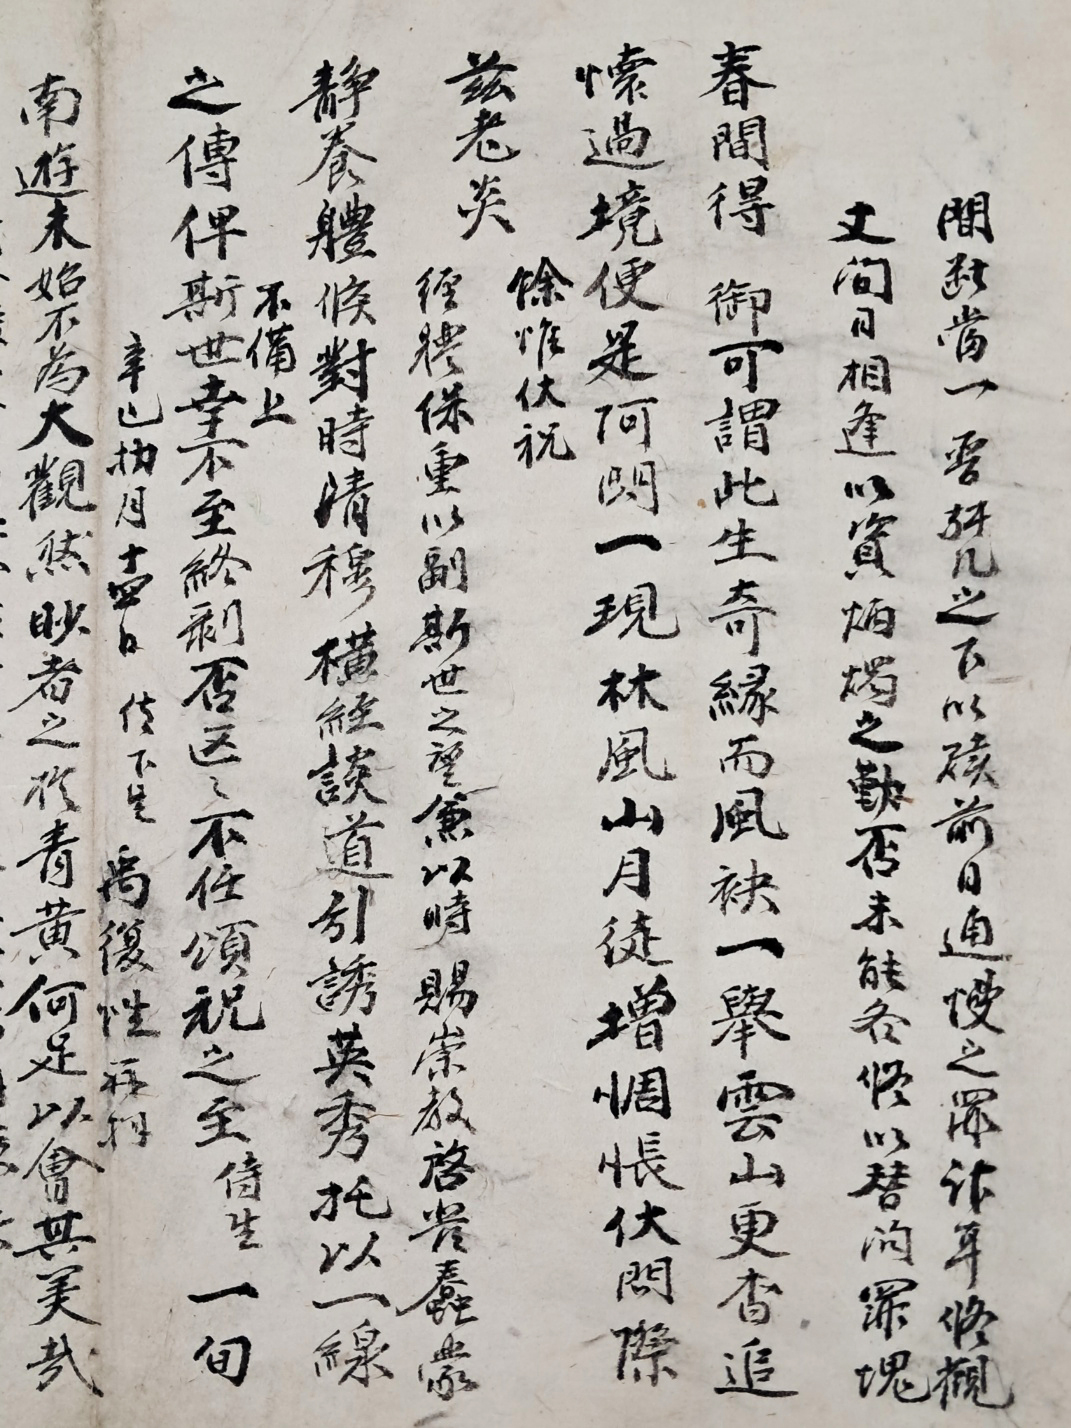 間 當一 凡之下以 前日通慢之罪 耳 修觀
丈間日相逢以資炳燭之勤否未能各修以替 罪愧
春間得 御可謂此生奇緣而風袂一舉雲山更杳追
懷過境便是阿閦一現林風山月徒增惆悵伏問際
茲老炎
餘惟伏祝
經體保重以副斯世之望兼以時賜崇教啓發蠢蒙
靜養體候對時清穆橫經談道引誘英秀托以一線
不備上
之傳俾斯世幸不至終剝否區々不任頌祝之至侍生一旬
辛巳 月十四日 侍下生 禹復性 拜
南遊未始不爲大觀然眇者之於青黃何足以會其美哉